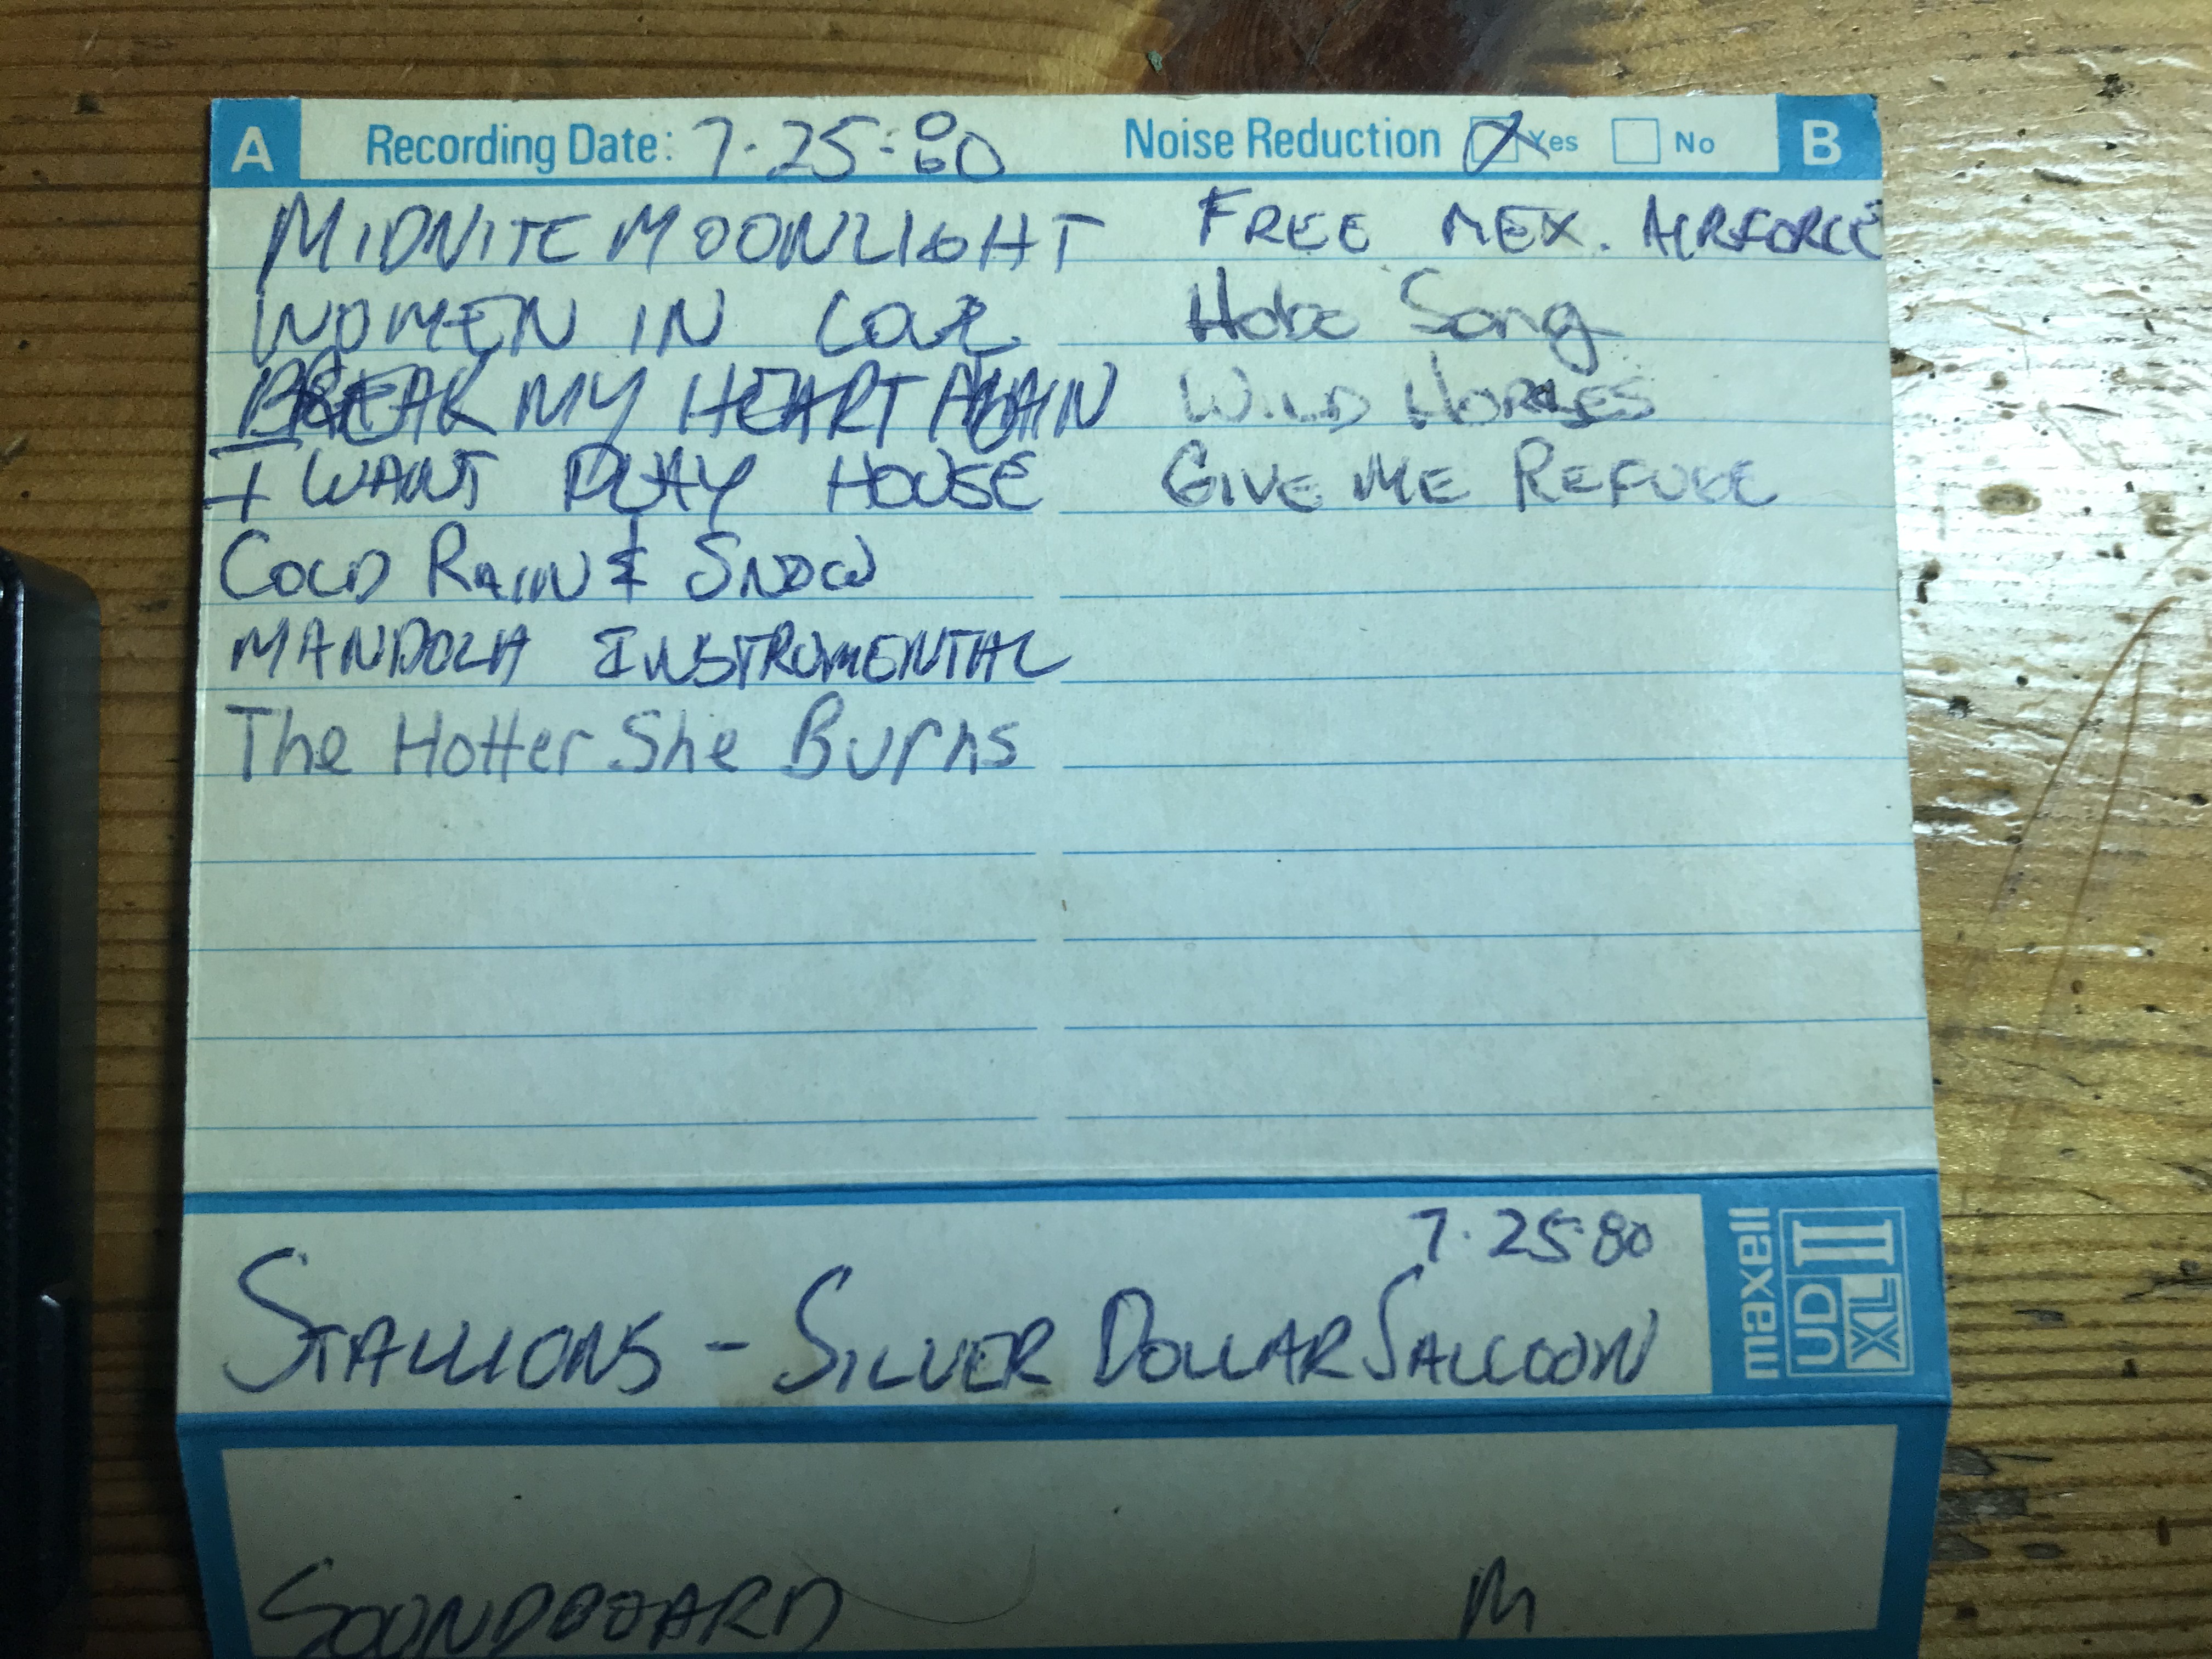 A Recording Date: 7.25.80 Noise Reduction Yes No B
MIDNITE MOONLIGHT FREE MEX. AIRFORCE
WOMEN IN LOVE Hobo Song
BREAK MY HEART AGAIN WILD HORSES
I WANT PLAY HOUSE GIVE ME REFUGE
COLD RAIN & SNOW
MANDOLA INSTRUMENTAL
The Hotter She Burns
7.25 80
STALLIONS - SILVER DOLLAR SALLOON
maxell
UD XL II
SOUNDBOARD M